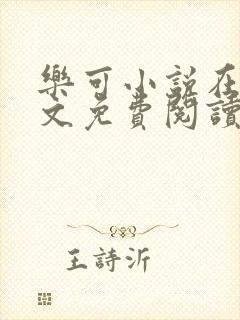 樂可小說在
文免費閱讀
王詩沂